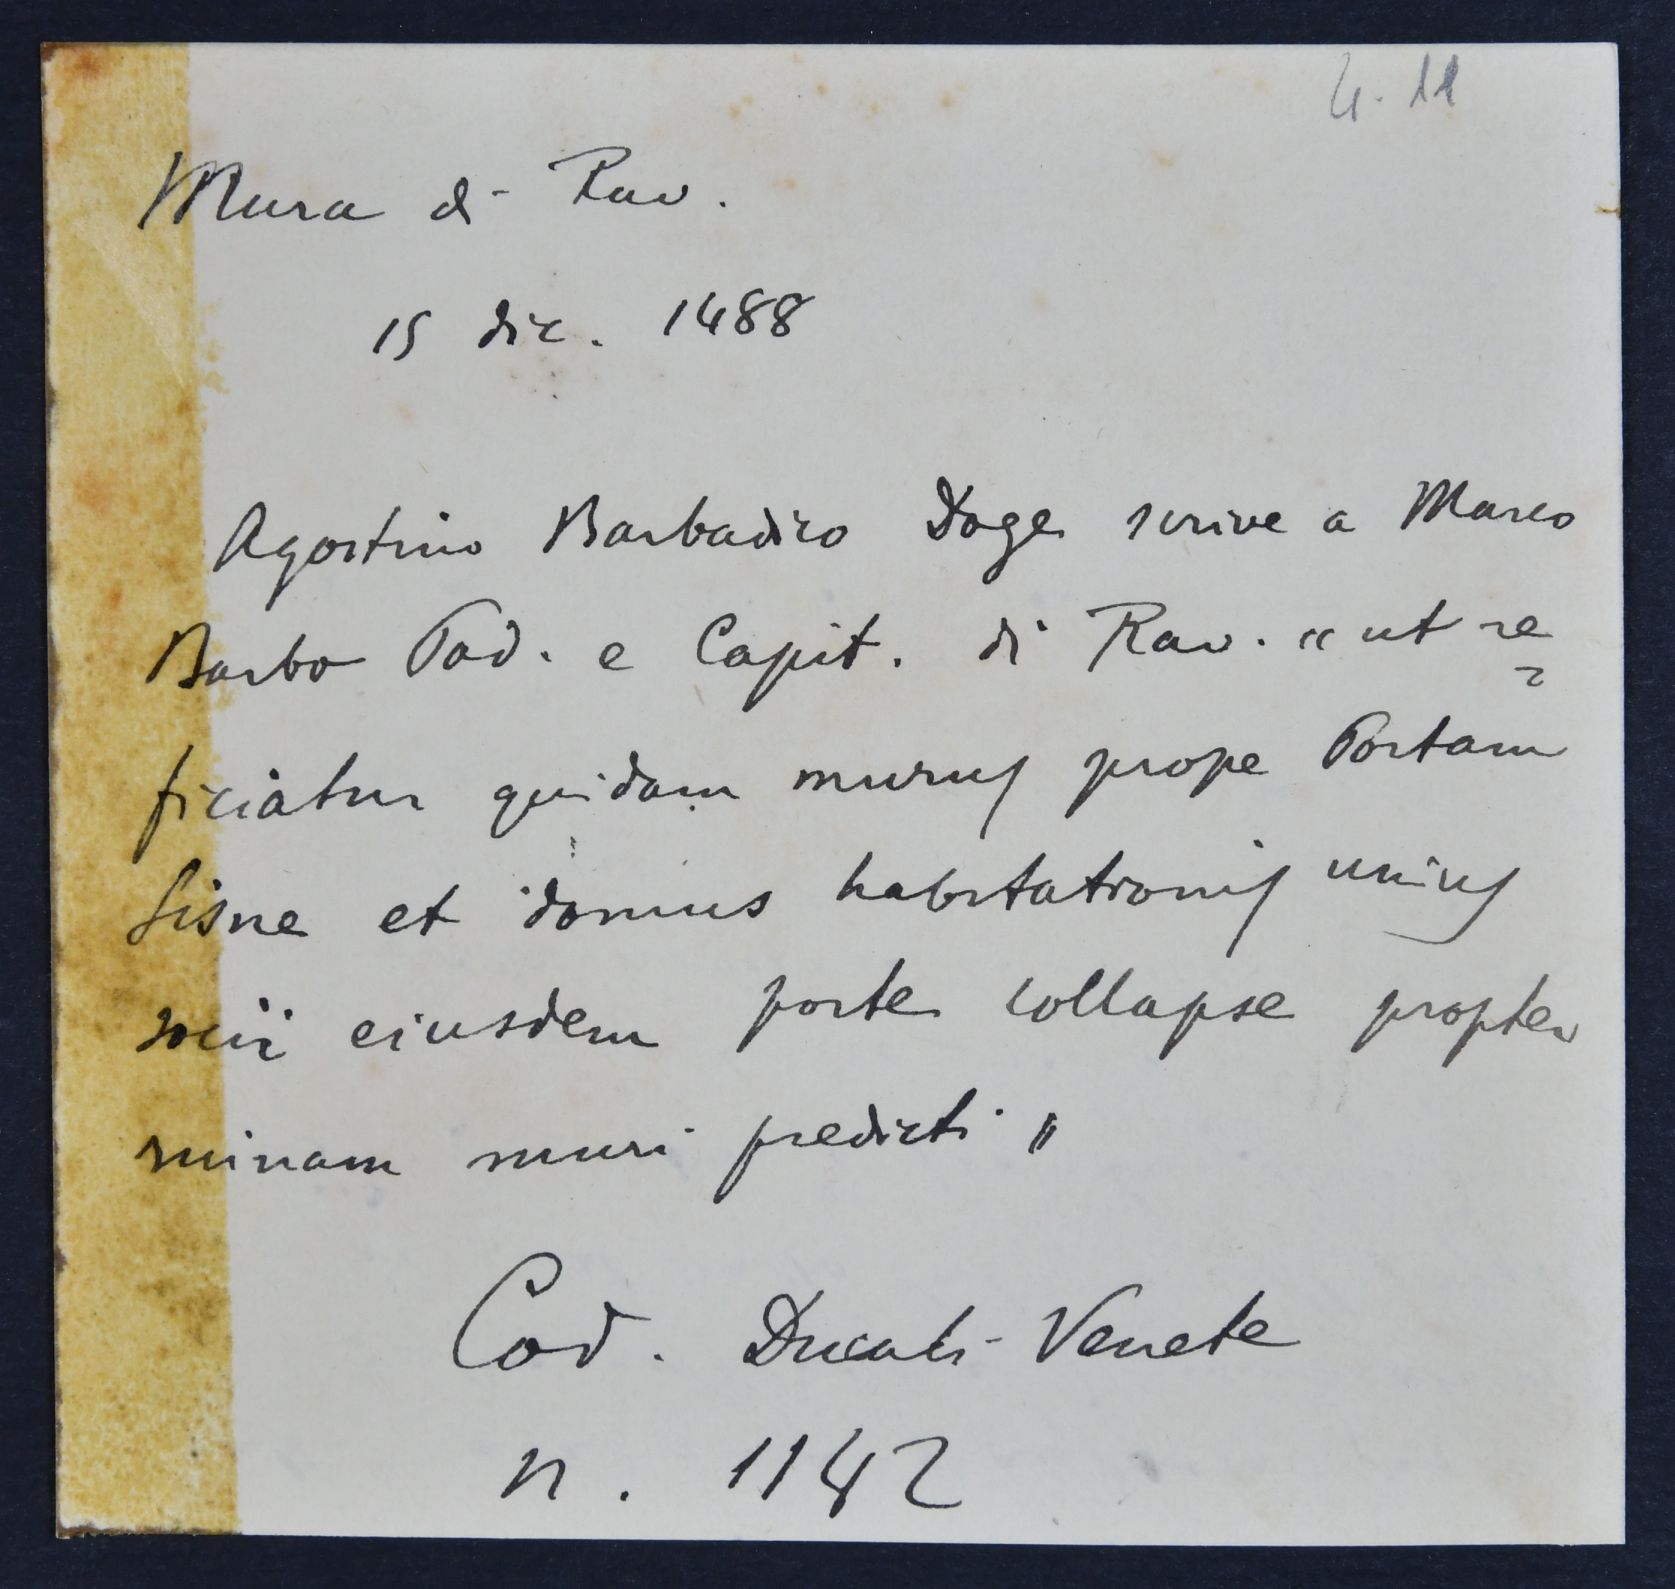 4. 11
Mura di Rav.
15 dic. 1488
Agostino Barbadico Doge scrive a Marco
Barbo Pod. e Capit. di Rav. "ut re=
ficiatur quidam murus prope Portam
Sisne et domus habitationis unius
socii eiusdem porte collapse propter
ruinam muri predicti"
Cod. Ducali Venete
n. 1142